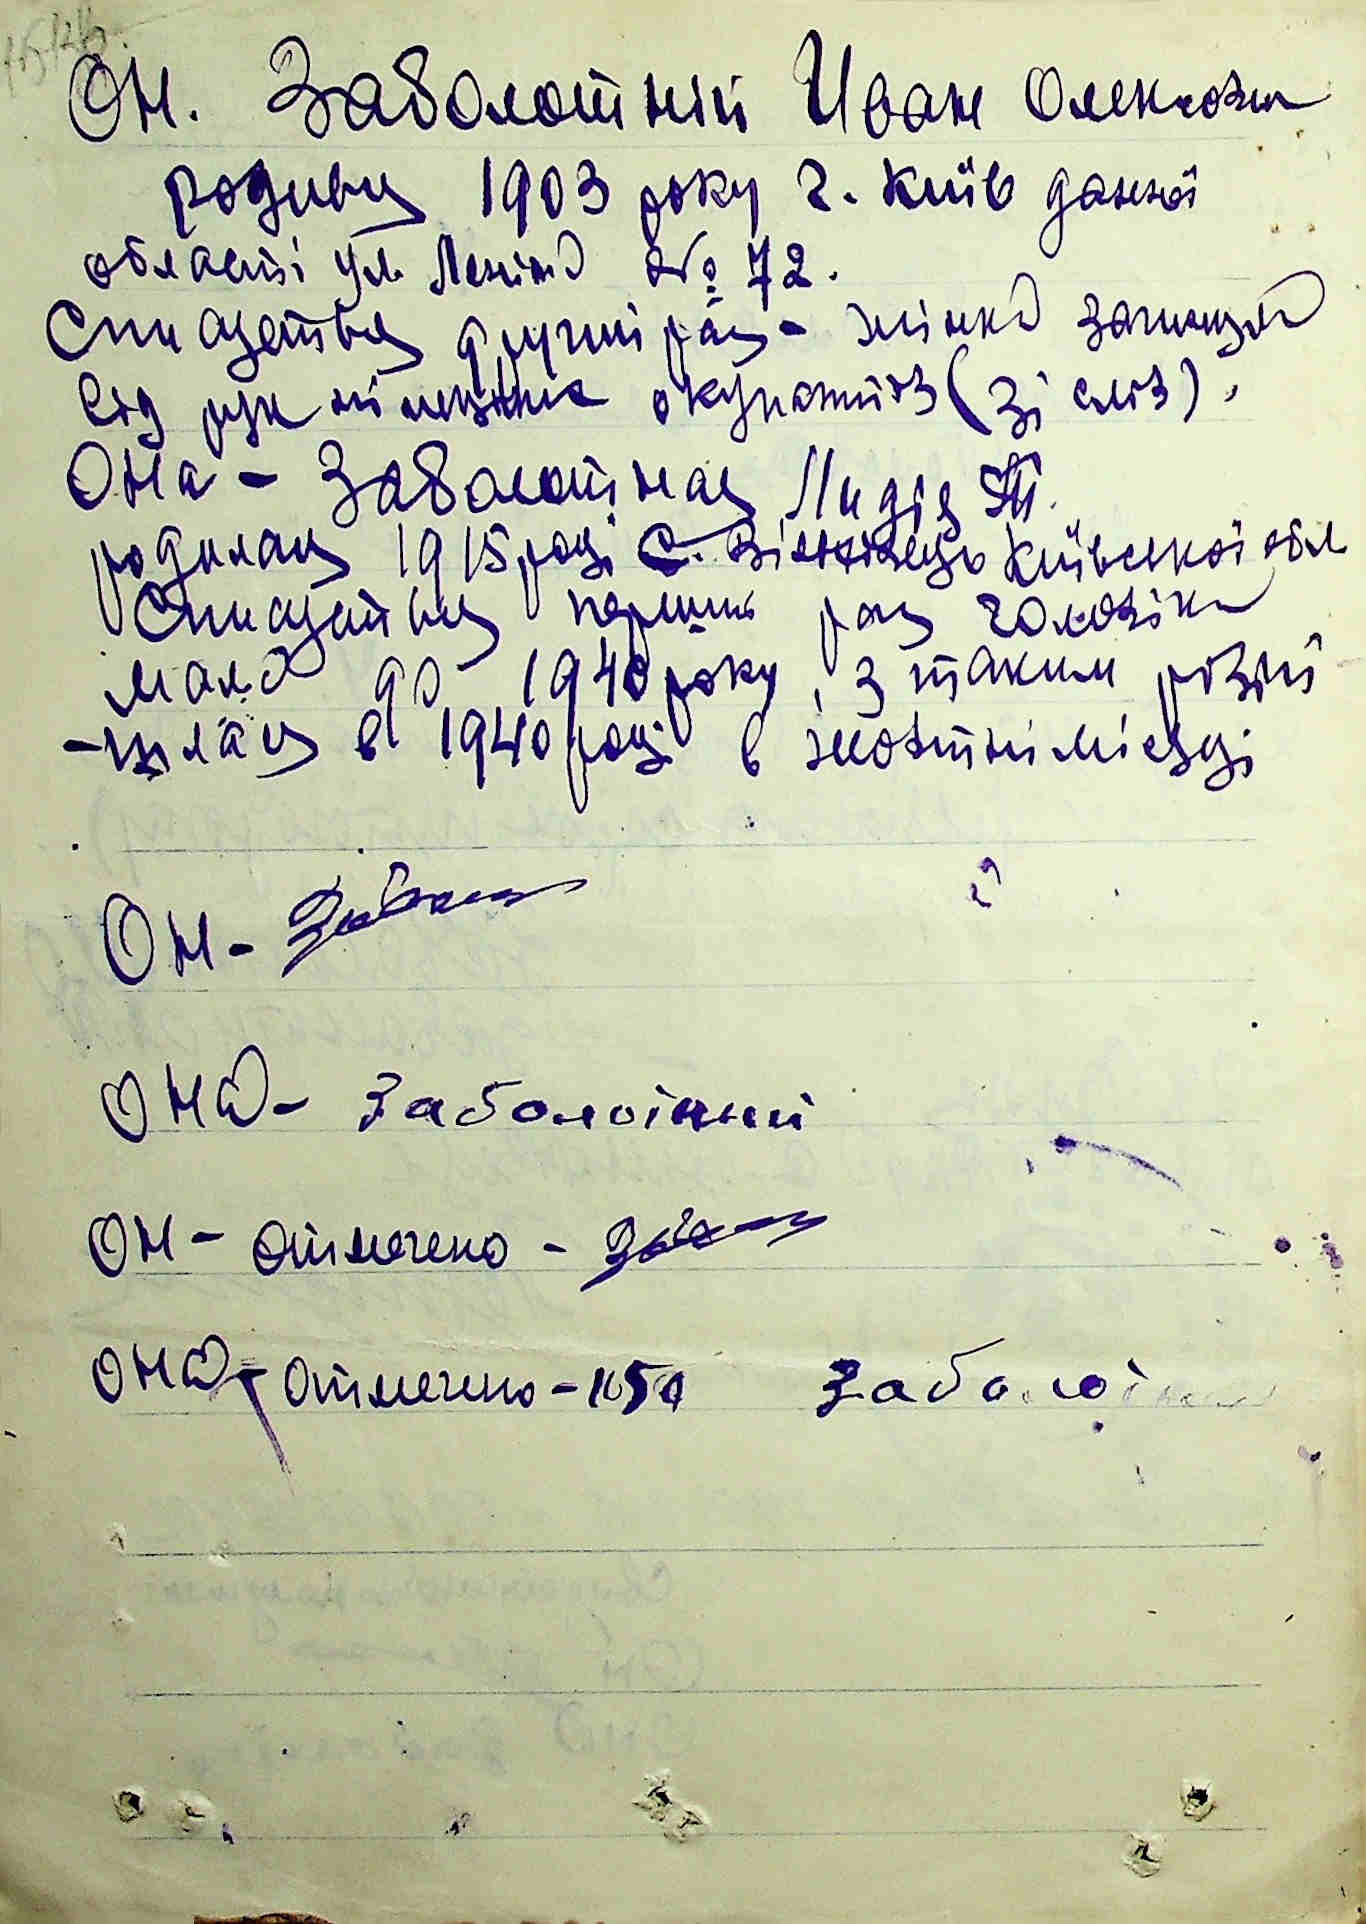 Он. Заболотній Иван Олексович
родивц 1903 року г. Київ данної
області ул Леніна № 72.
Списуетьця другий раз - жінка загинула
від рук німецьких окупантів (зі слів).
Она - Заболотная Лидія Т.
родилац 1915 році с. Київської обл
Списуетьця перший раз чоловіка
мала до 1940 року, з таким розій
-шлац в 1940 році в жовтні місяці
Он -
Она - Заболотний
Он - отмечено -
Она - отмечено - Заболотн